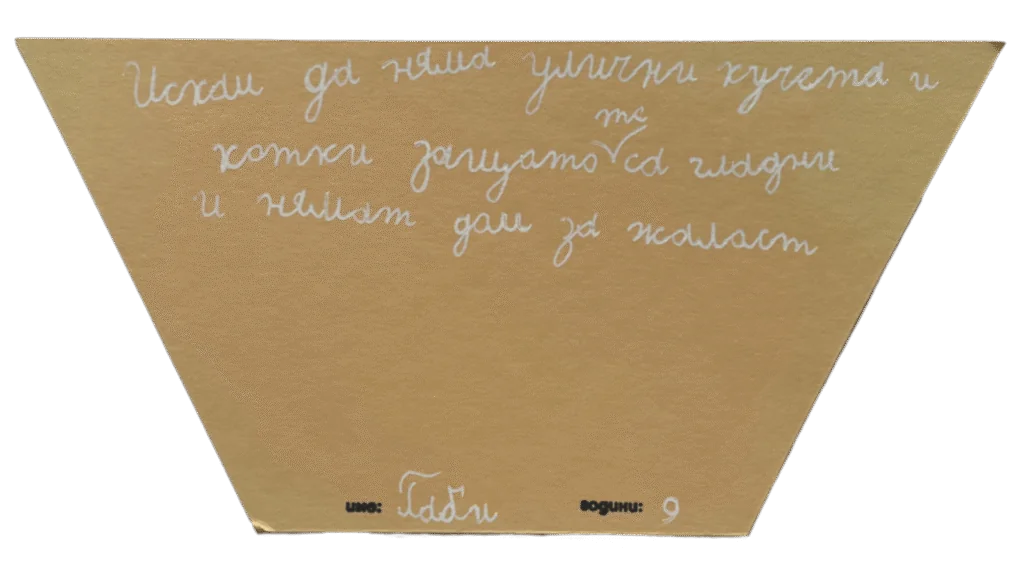 Искам да няма улични кучета и
котки защато те са гладни
и нямат дам за жаласт
име: Габи години: 9